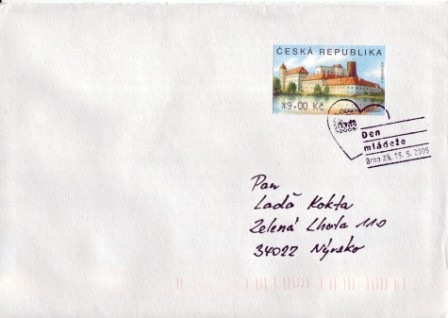 ČESKÁ REPUBLIKA
*9,00 Kč
Den
mládeže
Brno 26, 15. 5. 2005
Pan
Ladă Kokta
Zelená Lhota 110
34022 Nýrsko